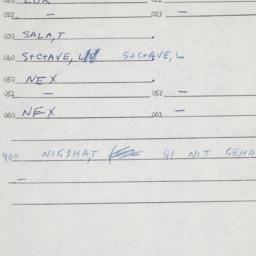 022 — 023 —
030 SALA,T
040 S+C+AVE, L S+C+AVE, L
050 NEX
051 — 052 —
060 NEX 061 —
900 NIGSHA,T QI NIT GEMA
—